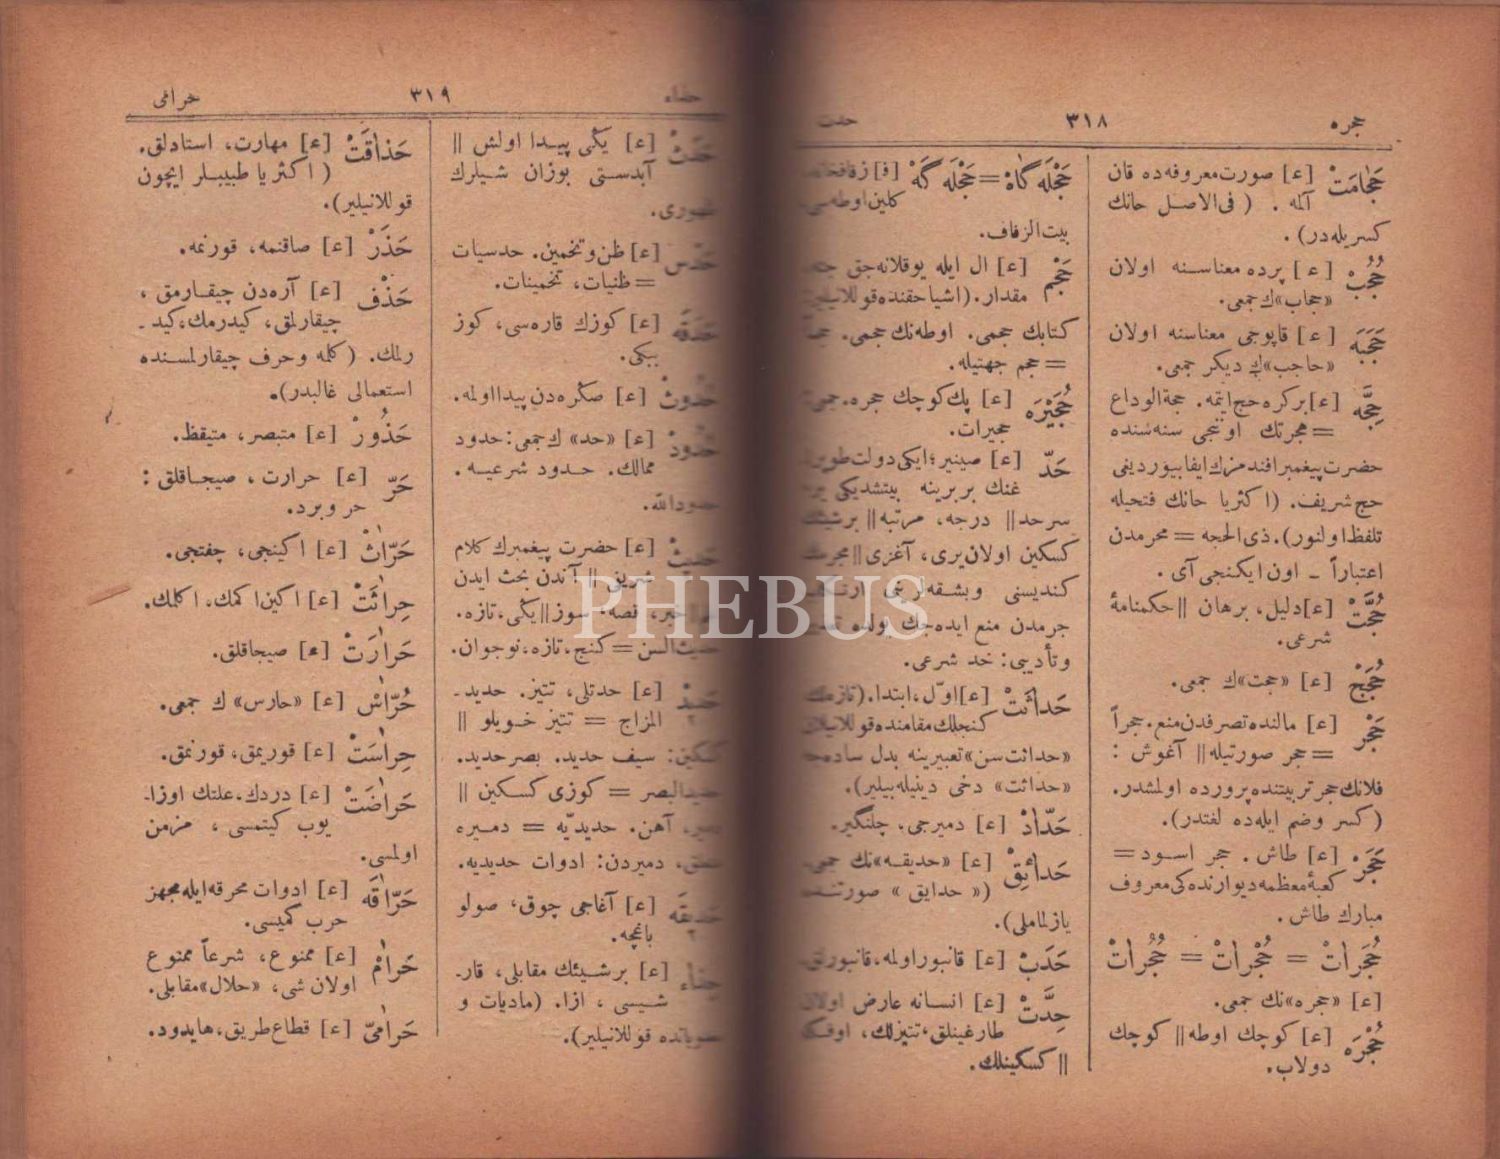 حجره ٣١٨ حدت
حَجٰامَتْ [ء] صورت معروفه‌ده قان
آلمه . ( فى‌الاصل حانك
كسريله‌در) .
حُجُبْ [ء] پرده معناسنه اولان
«حجاب»ك جمعى.
حَجَبَه [ء] قاپوجى معناسنه اولان
«حاجب»ك ديكر جمعى.
حِجَّه [ء] بركره حج ايتمه. حجة‌الوداع
= هجرتك اوننجى سنه‌سنده
حضرت پيغمبر افندمزك ايفا بيوردينى
حج شريف. (اكثريا حانك فتحيله
تلفظ اولنور). ذى‌الحجه = محرمدن
اعتباراً ـ اون ايكنجى آى .
حُجَّتْ [ء] دليل، برهان || حكمنامهٔ
شرعى.
حُجَجْ [ء] «حجت»ك جمعى.
حَجْر [ء] مالنده تصرفدن منع. حجراً
= حجر صورتيله || آغوش :
فلانك حجر تربيتنده پرورده اولمشدر.
(كسر وضم ايله‌ده لغتدر).
حَجَرْ [ء] طاش . حجر اسود =
كعبهٔ معظمه ديوارنده‌كى معروف
مبارك طاش .
حُجَراتْ = حُجْراتْ = حُجُراتْ
[ء] «حجره»نك جمعى.
حُجْرَه [ء] كوچك اوطه || كوچك
دولاب.
حَجْلَه گاهْ = حَجْلَه گَهْ [ف] زفافخانه
كلين اوطه‌سى
بيت‌الزفاف.
حَجْم [ء] ال ايله يوقلانه‌جق
مقدار. (اشيا حقنده قوللانيلير)
كتابك حجمى. اوطه‌نك حجمى.
= حجم جهتيله.
حُجَيْرَه [ء] پك كوچك حجره. جمى:
حجيرات.
حَدّ [ء] صينير؛ ايكى دولت طوپرا
غنك بربرينه بيتشديكى ير:
سرحد || درجه، مرتبه || برشيئك
كسكين اولان يرى، آغزى || مجرمك
كنديسنى وبشقه‌لرينى
جرمدن منع ايده‌جك يولده
وتأديبى: حد شرعى.
حَداثَتْ [ء] اوّل، ابتدا. (تازه‌لك
كنجلك مقامنده قوللانيلان
«حداثت سن» تعبيرينه بدل ساده‌جه
«حداثت» دخى دينيله‌بيلير).
حَدّادْ [ء] دميرجى، چلنگير.
حَدائِقْ [ء] «حديقه»نك جمعى.
(« حدايق » صورتنده
يازلماملى).
حَدَبْ [ء] قانبور اولمه، قانبورلق.
حِدَّتْ [ء] انسانه عارض اولان
طارغينلق، تتيزلك، اوفكه
|| كسكينلك.
حذاء ٣١٩ حرامى
[ء] يكى پيدا اولش ||
آبدستى بوزان شيلرك
حَدْس [ء] ظن وتخمين. حدسيات
= ظنيات، تخمينات.
حَدَقَه [ء] كوزك قاره‌سى، كوز
ببكى.
حُدُوثْ [ء] صكره‌دن پيدا اولمه.
حُدُودْ [ء] «حد»ك جمعى: حدود
ممالك. حدود شرعيه .
حدودالله.
حَديثْ [ء] حضرت پيغمبرك كلام
شريفى || آندن بحث ايدن
خبر، قصه، سوز || يكى، تازه.
حديث‌السن = كنج، تازه، نوجوان.
حَديدْ [ء] حدتلى، تتيز. حديد-
المزاج = تتيز خويلو ||
كسكين: سيف حديد. بصر حديد.
حديدالبصر = كوزى كسكين ||
دمير، آهن. حديديّه = دميره
دميردن: ادوات حديديه.
حَديقَه [ء] آغاجى چوق، صولو
باغچه.
حِذاء [ء] برشيئك مقابلى، قار-
شيسى ، ازا. (ماديات و
قوللانيلير).
حَذاقَتْ [ء] مهارت، استادلق.
( اكثريا طبيبلر ايچون
قوللانيلير).
حَذَرْ [ء] صاقنمه، قورنمه.
حَذْف [ء] آره‌دن چيقارمق ،
چيقارلمق، كيدرمك، كيد-
رلمك. (كلمه وحرف چيقارلمسنده
استعمالى غالبدر).
حَذُورْ [ء] متبصر، متيقظ.
حَرّ [ء] حرارت ، صيجاقلق :
حر وبرد.
حَرّاثْ [ء] اكينجى، چفتجى.
حِراثَتْ [ء] اكين اكمك، اكلمك.
حَرارَتْ [ء] صيجاقلق.
حُرّاسْ [ء] «حارس» ك جمعى.
حِراسَتْ [ء] قوريمق، قورنمق.
حَراضَتْ [ء] دردك. علتك اوزا-
يوب كيتمسى ، مزمن
اولمسى.
حَرّاقَه [ء] ادوات محرقه ايله مجهز
حرب كميسى.
حَرامْ [ء] ممنوع، شرعاً ممنوع
اولان شى، «حلال» مقابلى.
حَرامىّ [ء] قطاع طريق، هايدود.
PHEBUS